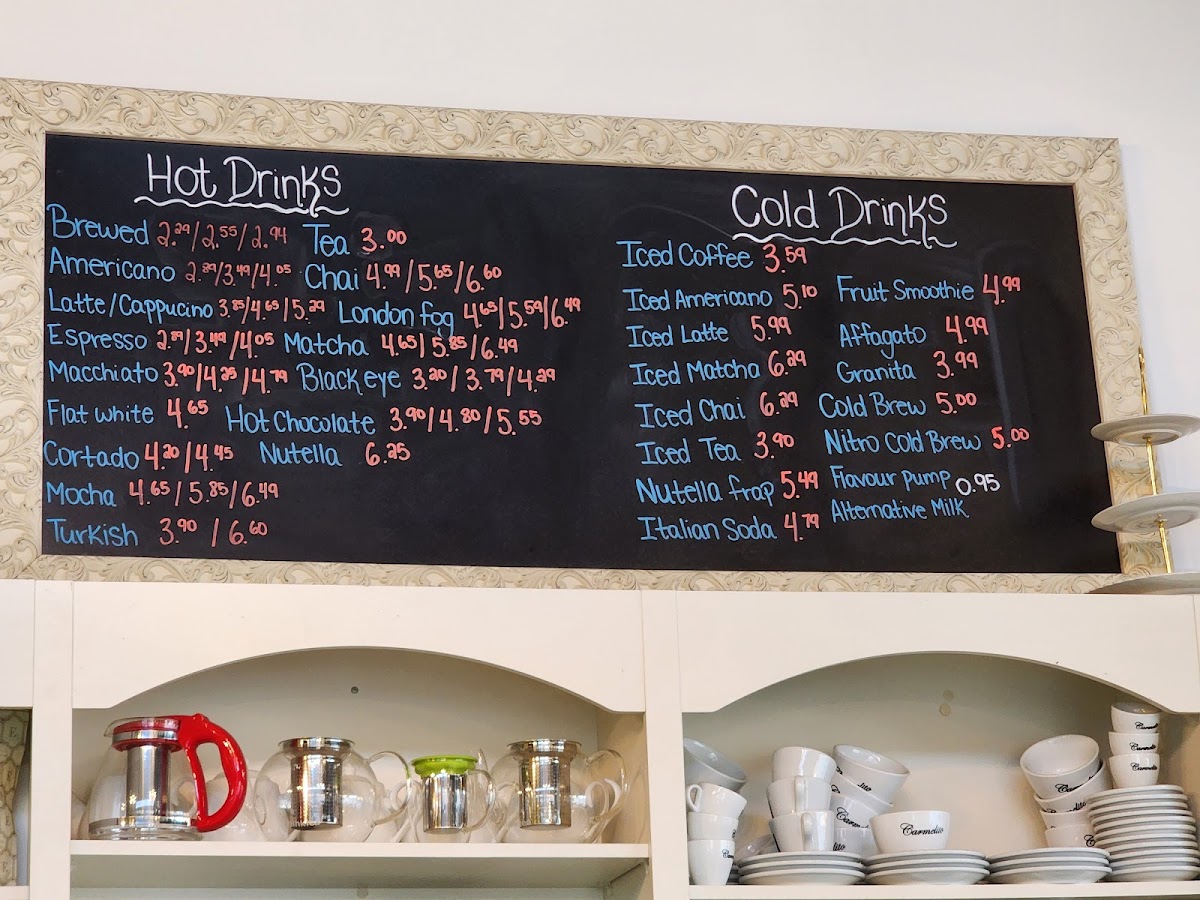 Hot Drinks
Brewed 2.29/2.55/2.94
Americano 2.89/3.49/4.05
Latte/Cappucino 3.85/4.65/5.29
Espresso 2.89/3.49/4.05
Macchiato 3.90/4.25/4.79
Flat white 4.65
Cortado 4.20/4.45
Mocha 4.65/5.85/6.49
Turkish 3.90/6.60
Tea 3.00
Chai 4.99/5.65/6.60
London fog 4.65/5.59/6.49
Matcha 4.65/5.85/6.49
Black eye 3.20/3.79/4.29
Hot Chocolate 3.90/4.80/5.55
Nutella 6.25
Cold Drinks
Iced Coffee 3.59
Iced Americano 5.10
Iced Latte 5.99
Iced Matcha 6.29
Iced Chai 6.29
Iced Tea 3.90
Nutella frap 5.49
Italian Soda 4.79
Fruit Smoothie 4.99
Affagato 4.99
Granita 3.99
Cold Brew 5.00
Nitro Cold Brew 5.00
Flavour pump 0.95
Alternative Milk
Carmelito
Carmelito
Carmelito
Carmelito